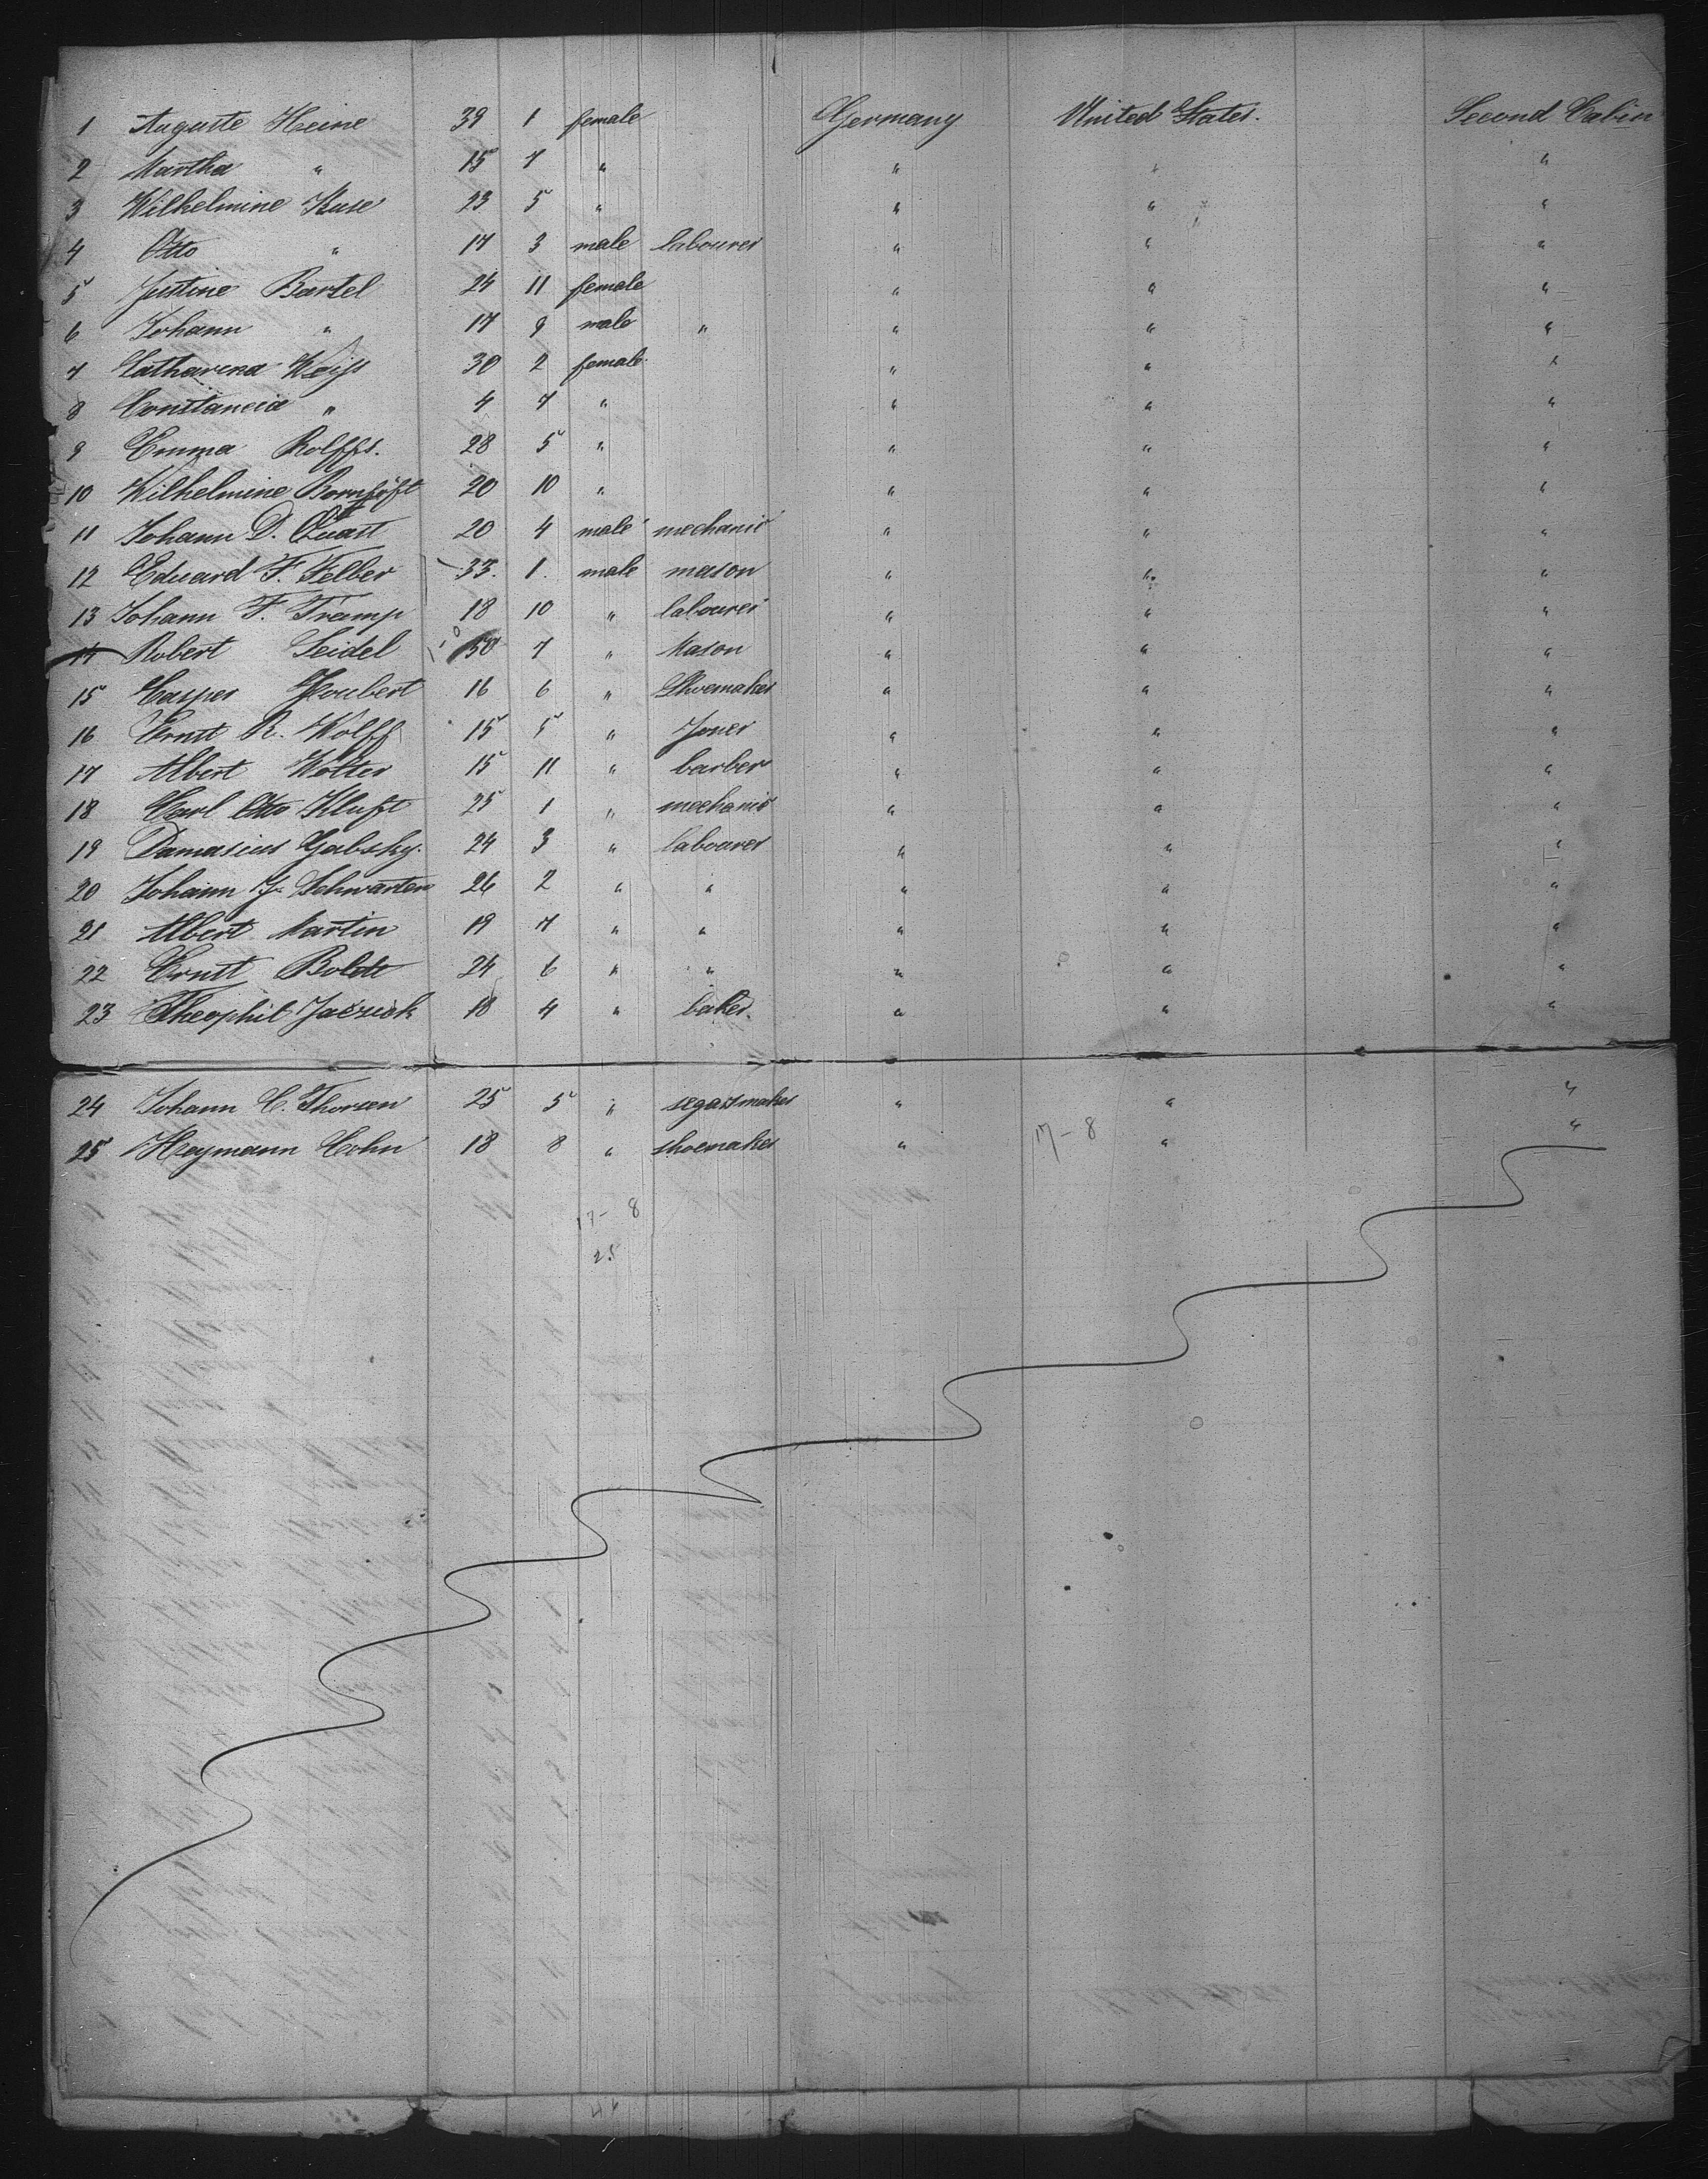 1 Auguste Heine 39 1 female Germany United States. Second Cabin
2 Martha " 15 7 " " " "
3 Wilhelmine Kuse 23 5 " " " "
4 Otto " 17 3 male labourer " " "
5 Justine Bartel 24 11 female " " "
6 Johann " 17 9 male " " " "
7 Catharina Weiss 30 2 female " " "
8 Constancia " 4 7 " " " "
9 Emma Rolffs. 28 5 " " " "
10 Wilhelmine Bornhöft 20 10 " " " "
11 Johann D. Quast 20 4 male mechanic " " "
12 Eduard F. Felber 33. 1. male mason " " "
13 Johann F. Tramp 18 10 " labourer " " "
14 Robert Seidel 50 7 " Mason " " "
15 Casper Joubert 16 6 " Shoemaker " " "
16 Ernst R. Wolff 15 5 " Joner " " "
17 Albert Wolter 15 11 " barber " " "
18 Carl Otto Kluft 25 1 " mechanic " " "
19 Damasius Gabsky. 24 3 " labourer " " "
20 Johann J. Schwarten 26 2 " " " " "
21 Albert Martin 19 7 " " " " "
22 Ernst Boldt 24 6 " " " " "
23 Theophil 18 4 " baker. " " "
24 Johann C. Thorsen 25 5 " segarsmaker " " "
25 Heymann Cohn 18 8 " shoemaker " 17-8 " "
17- 8
25